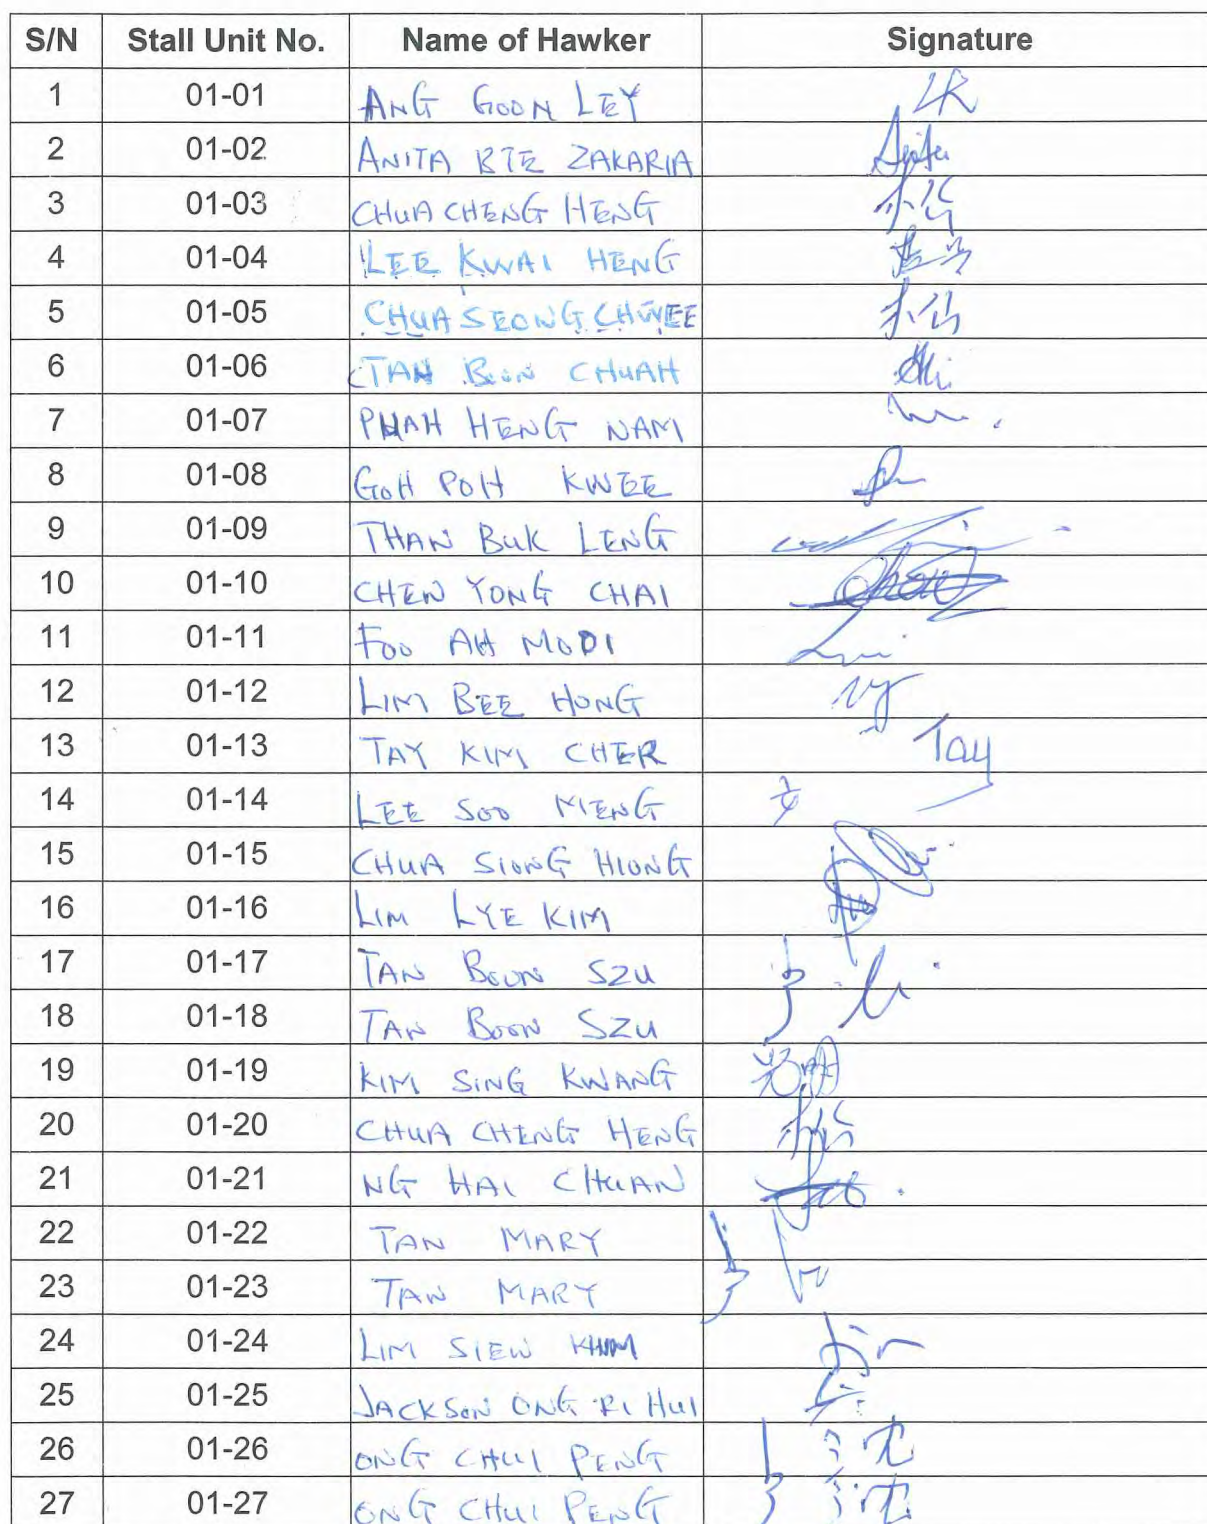 S/N Stall Unit No. Name of Hawker Signature
1 01-01 ANG GOON LEY
2 01-02 ANITA BTE ZAKARIA
3 01-03 CHUA CHENG HENG
4 01-04 LEE KWAI HENG
5 01-05 CHUA SEONG CHWEE
6 01-06 TAN BOON CHUAH
7 01-07 PHAH HENG NAM
8 01-08 GOH POH KWEE
9 01-09 THAN BUK LENG
10 01-10 CHEN YONG CHAI
11 01-11 FOO AH MOOI
12 01-12 LIM BEE HONG
13 01-13 TAY KIM CHER Tay
14 01-14 LEE SOO MENG
15 01-15 CHUA SIONG HIONG
16 01-16 LIM LYE KIM
17 01-17 TAN BOON SZU
18 01-18 TAN BOON SZU
19 01-19 KIM SING KWANG
20 01-20 CHUA CHENG HENG
21 01-21 NG HAI CHUAN
22 01-22 TAN MARY
23 01-23 TAN MARY
24 01-24 LIM SIEW
25 01-25 JACKSON ONG RI HUI
26 01-26 ONG CHUI PENG
27 01-27 ONG CHUI PENG